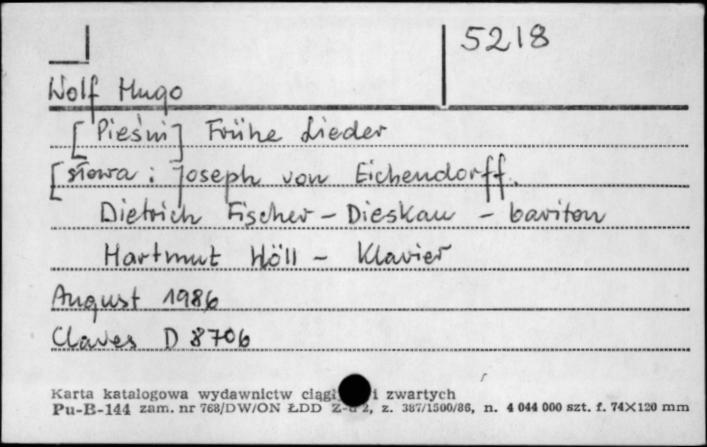 5218
Wolf Hugo
[Pieśni] Frühe Lieder
[słowa: Joseph von Eichendorff.
Dietrich Fischer-Dieskau - bariton
Hartmut Höll - Klavier
August 1986
Claves D 8706
Karta katalogowa wydawnictw i zwartych
Pu-B-144 zam. nr 768/DW/ON ŁDD 2, z. 387/1500/86, n. 4 044 000 szt. f. 74×120 mm